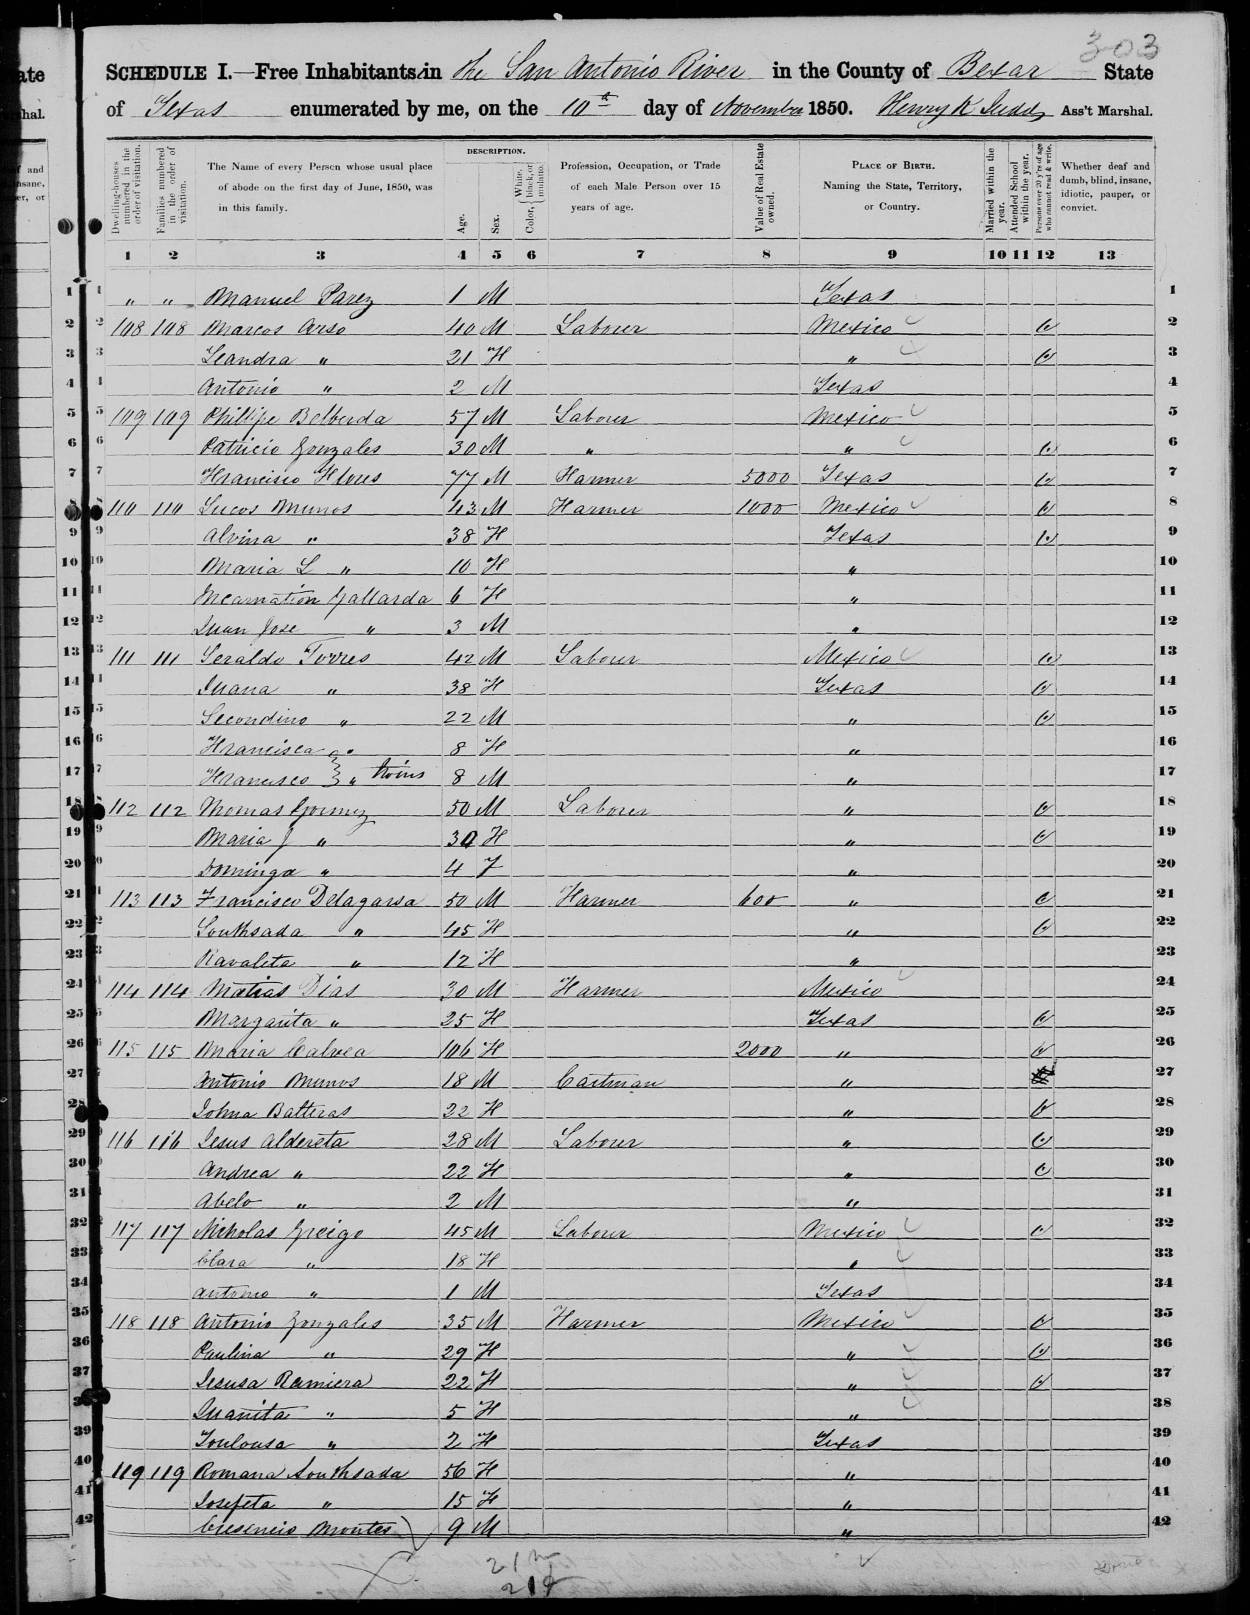 303
SCHEDULE I.—Free Inhabitants in the San Antonio River in the County of Bexar State
of Texas enumerated by me, on the 10th day of November 1850. Henry K Judd Ass't Marshal.
Dwelling-houses numbered in the order of visitation.
Families numbered in the order of visitation.
The Name of every Person whose usual place of abode on the first day of June, 1850, was in this family.
DESCRIPTION.
Age.
Sex.
Color, White, black, or mulatto.
Profession, Occupation, or Trade of each Male Person over 15 years of age.
Value of Real Estate owned.
PLACE OF BIRTH. Naming the State, Territory, or Country.
Married within the year.
Attended School within the year.
Persons over 20 y'rs of age who cannot read & write.
Whether deaf and dumb, blind, insane, idiotic, pauper, or convict.
1 2 3 4 5 6 7 8 9 10 11 12 13
1 " " Manuel Parez 1 M Texas 1
2 108 108 Marcos Arso 40 M Laborer Mexico 2
3 Leandra " 21 F " 3
4 Antonio " 2 M Texas 4
5 109 109 Phillipe Belberda 57 M Laborer Mexico 5
6 Patricio Gonzales 30 M " " 6
7 Francisco Flores 77 M Farmer 5000 Texas 7
8 110 110 Lucos Munos 43 M Farmer 1000 Mexico 8
9 Alvina " 38 F Texas 9
10 Maria L " 10 F " 10
11 Incarnation Gallarda 6 F " 11
12 Juan Jose " 3 M " 12
13 111 111 Seraldo Torres 42 M Laborer Mexico 13
14 Juana " 38 F Texas 14
15 Secondino " 22 M " 15
16 Francisca " 8 F " 16
17 Francisco " twins 8 M " 17
18 112 112 Thomas Gormez 50 M Laborer " 18
19 Maria J " 30 F " 19
20 Dominga " 4 F " 20
21 113 113 Francisco Delagarsa 50 M Farmer 600 " 21
22 Southsada " 45 F " 22
23 Ravaleta " 12 F " 23
24 114 114 Matias Dias 30 M Farmer Mexico 24
25 Margarita " 25 F Texas 25
26 115 115 Maria Calvea 106 F 2000 " 26
27 Antonio Munos 18 M Cartman " 27
28 Johna Batteras 22 F " 28
29 116 116 Jesus Aldereta 28 M Laborer " 29
30 Andrea " 22 F " 30
31 Abelo " 2 M " 31
32 117 117 Nicholas Greigo 45 M Laborer Mexico 32
33 Clara " 18 F " 33
34 Antonio " 1 M Texas 34
35 118 118 Antonio Gonzales 35 M Farmer Mexico 35
36 Paulina " 29 F " 36
37 Jesusa Ramiera 22 F " 37
38 Juanita " 5 F " 38
39 Toulousa " 2 F Texas 39
40 119 119 Romana Southsada 56 F " 40
41 Josefeta " 15 F " 41
42 Cresencio Montes 9 M " 42